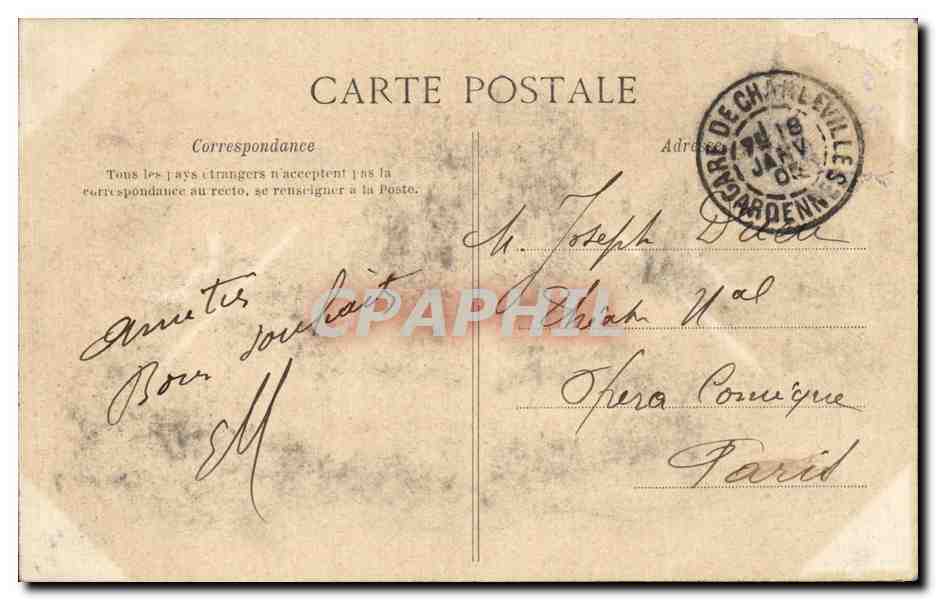 CARTE POSTALE
Correspondance
Tous les pays etrangers n'acceptent pas la
correspondance au recto, se renseigner à la Poste.
Adresse
GARE DE CHARLEVILLE
18
JANV
ARDENNES
M. Joseph
Théatre Nal
Opera Comique
Paris
Amitiés
Bons souhaits
EM
CPAPHIL